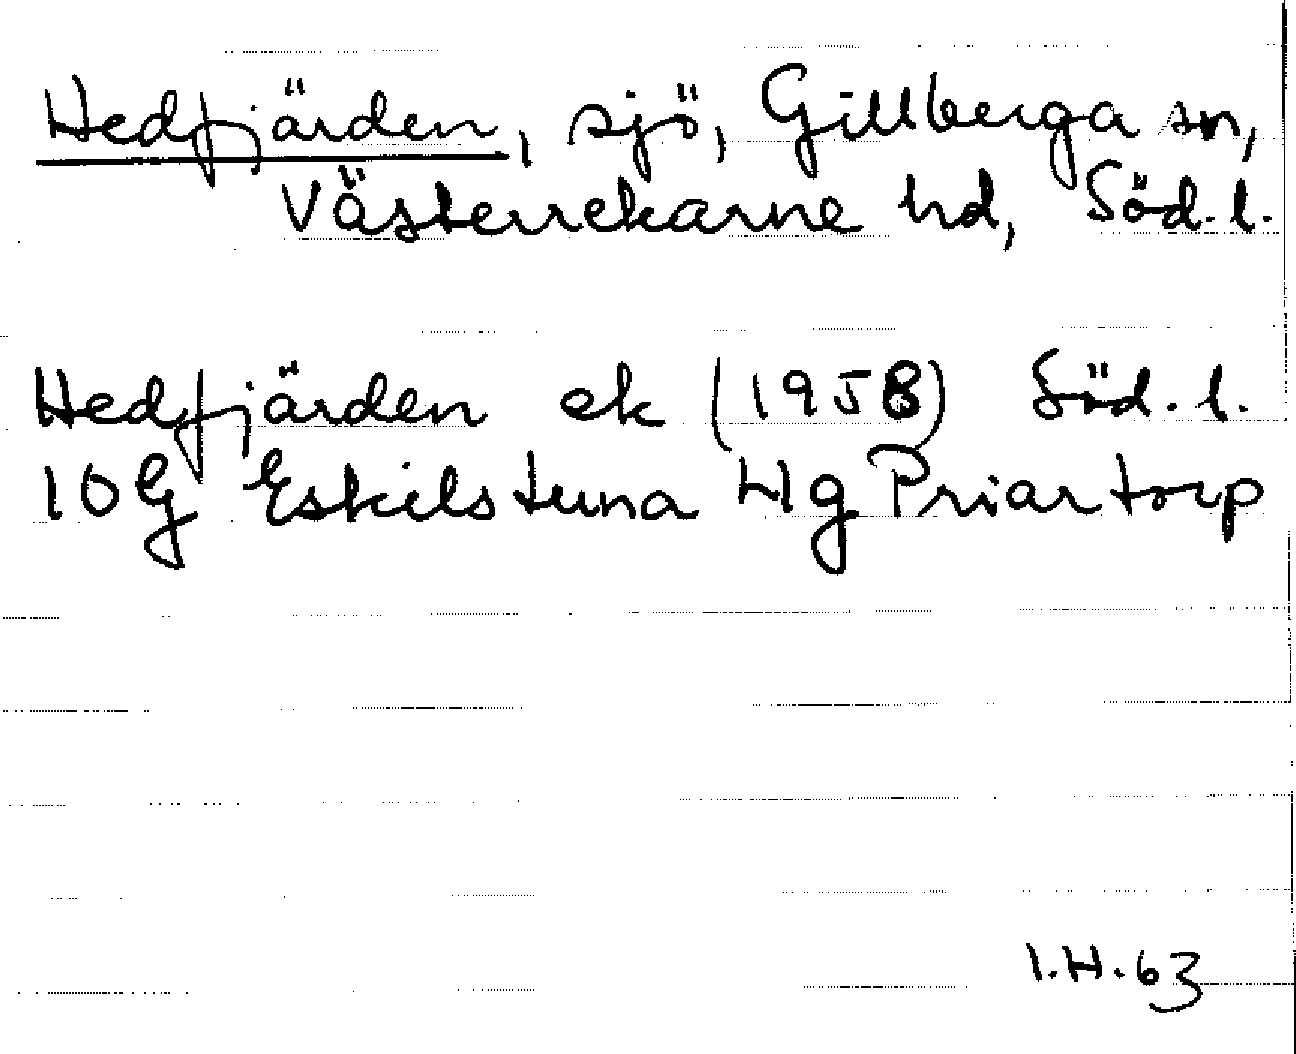 Hedfjärden, sjö, Gillberga sn,
Västerrekarne hd, Söd.l.
Hedfjärden ek (1958) Söd.l.
10G Eskilstuna 4g Priartorp
I.H.63